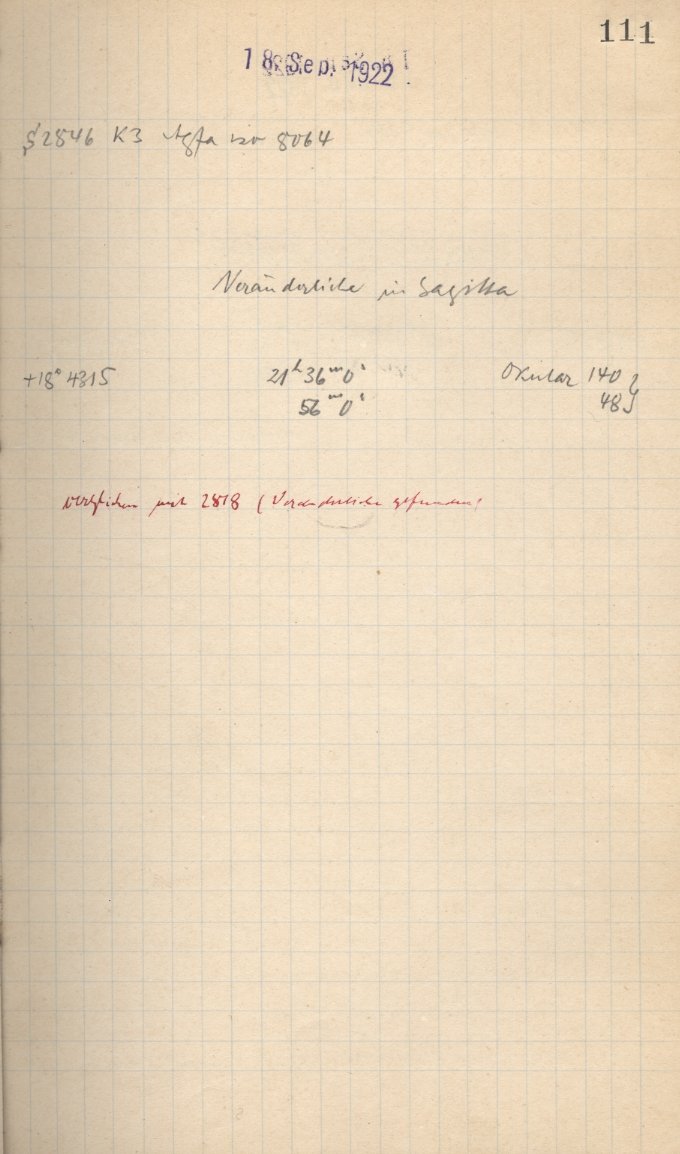 111
18. Sep. 1922
S 2846 K3 Agfa iso 8064
Veränderliche in Sagitta
+18° 4315 21ʰ 36ᵐ 0ˢ Okular 140
56ᵐ 0ˢ 48
verglichen mit 2818 (Veränderliche gefunden)